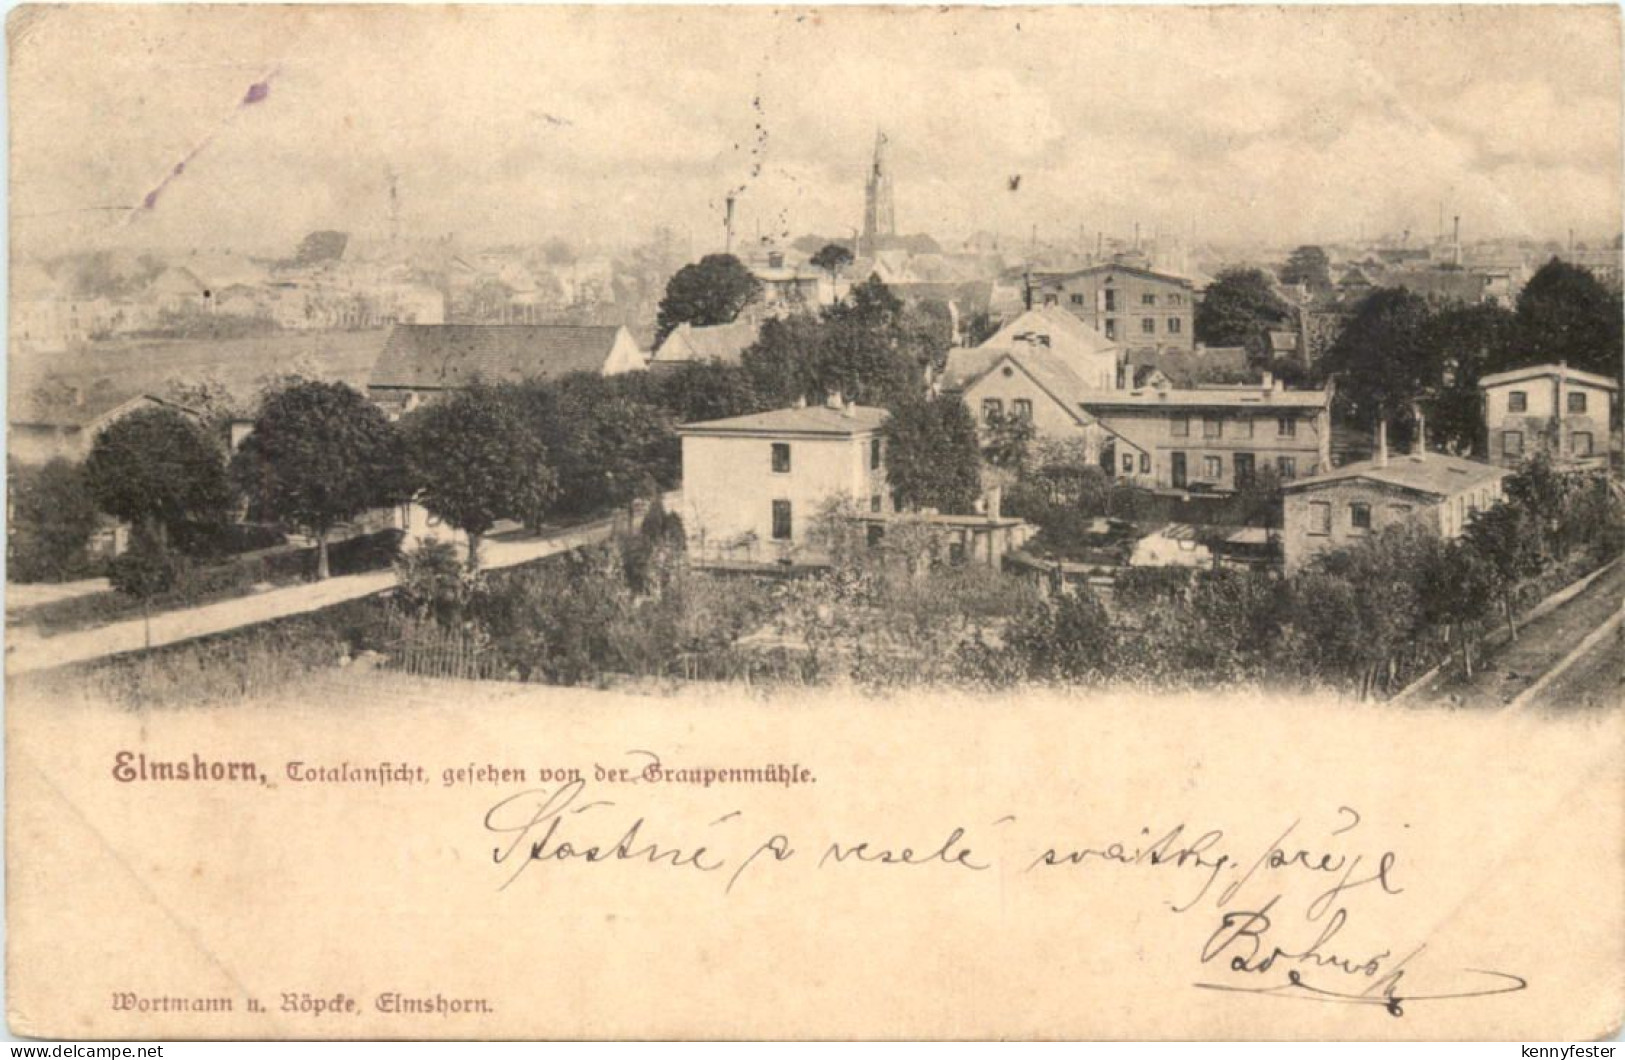 Elmshorn, Totalansicht, gesehen von der Graupenmühle.
Šťastné a veselé svátky přeje
Wortmann u. Röpcke, Elmshorn.
www.delcampe.net
kennyfester